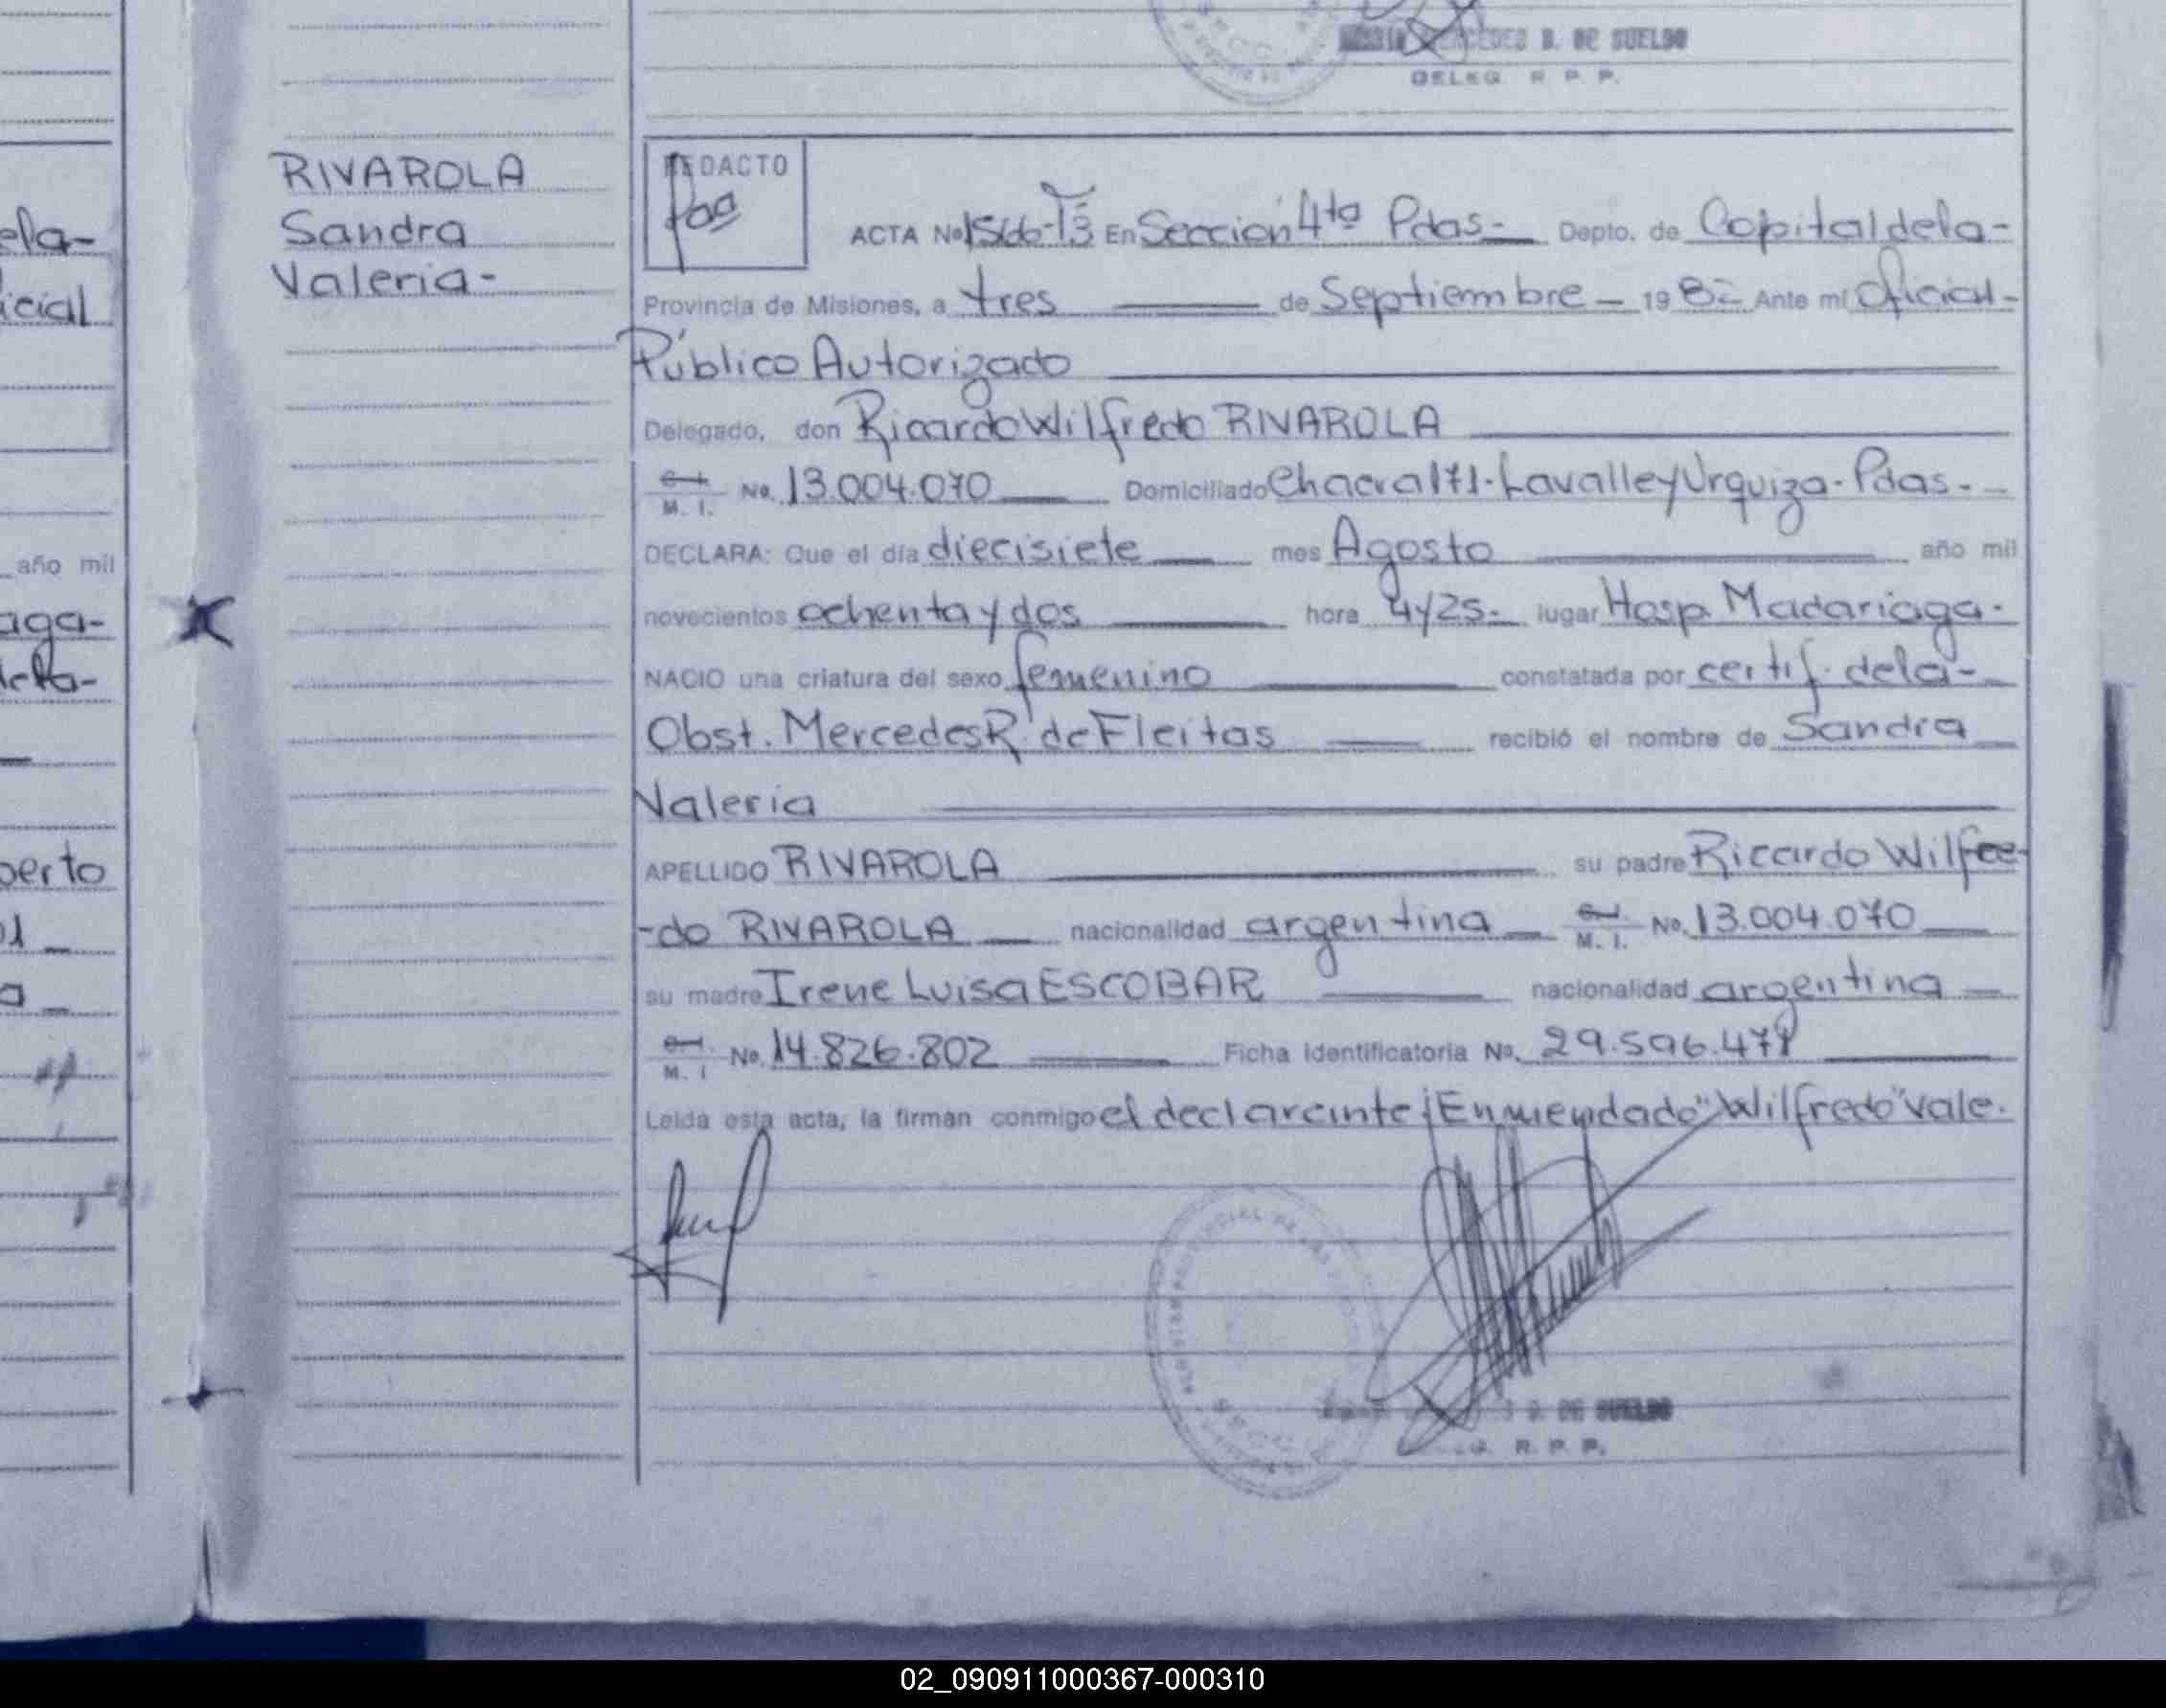 MERCEDES B. DE SUELDO
DELEG. R. P. P.
RIVAROLA
Sandra
Valeria-
REDACTO
ACTA No 1566-T3 En Sección 4ta Pdas- Depto. de Capital de la-
Provincia de Misiones, a tres de Septiembre - 1982 Ante mí Oficial-
Público Autorizado
Delegado, don Ricardo Wilfredo RIVAROLA
M. I. No. 13.004.070 Domiciliado Chacra 171-Lavalle y Urquiza-Pdas-
DECLARA: Que el día diecisiete mes Agosto año mil
novecientos ochenta y dos hora 4y25- lugar Hosp. Madariaga-
NACIO una criatura del sexo femenino constatada por certif. de la-
Obst. Mercedes R. de Fleitas recibió el nombre de Sandra
Valeria
APELLIDO RIVAROLA su padre Ricardo Wilfre-
-do RIVAROLA nacionalidad argentina M. I. No. 13.004.070
su madre Irene Luisa ESCOBAR nacionalidad argentina
M. I No. 14.826.802 Ficha Identificatoria No. 29.596.471
Leída esta acta, la firman conmigo el declarante Enmendado "Wilfredo" vale.
DE SUELDO
R. P. P.
ela-
icial
año mil
aga-
dela-
berto
02_090911000367-000310